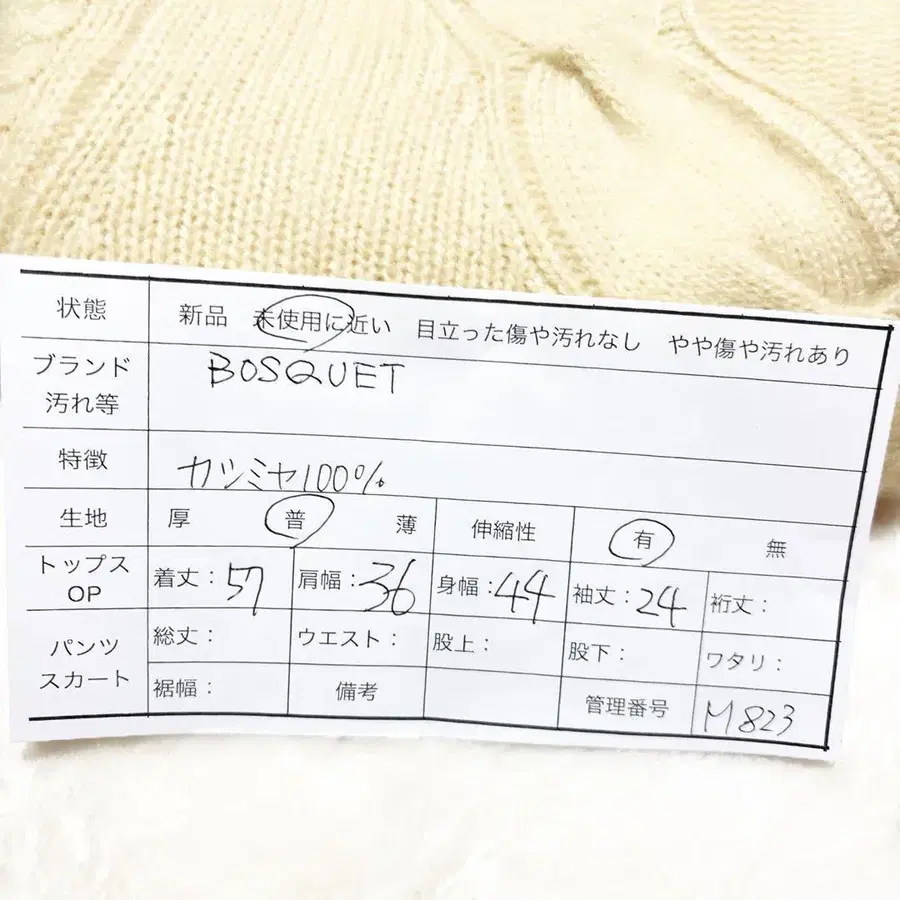 状態 新品 未使用に近い 目立った傷や汚れなし やや傷や汚れあり
ブランド BOSQUET
汚れ等
特徴 カシミヤ100%
生地 厚 普 薄 伸縮性 有 無
トップス OP 着丈：57 肩幅：36 身幅：44 袖丈：24 裄丈：
パンツ スカート 総丈： ウエスト： 股上： 股下： ワタリ：
裾幅： 備考 管理番号 M823